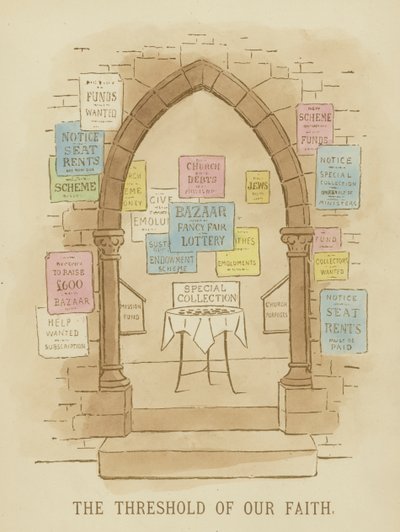 FUNDS
WANTED
NOTICE
SEAT
RENTS
SCHEME
NEW
SCHEME
FUNDS
NOTICE
SPECIAL
COLLECTION
MINISTERS
CHURCH
DEBTS
JEWS
EMOLU
BAZAAR
FANCY FAIR
LOTTERY
SUST
ENDOWMENT
SCHEME
THES
EMOLUMENTS
FUND
COLLECTORS
WANTED
TO RAISE
£600
BAZAAR
HELP
WANTED
SUBSCRIPTION
MISSION
FUND
SPECIAL
COLLECTION
CHURCH
PURPOSES
NOTICE
SEAT
RENTS
MUST BE
PAID
THE THRESHOLD OF OUR FAITH.